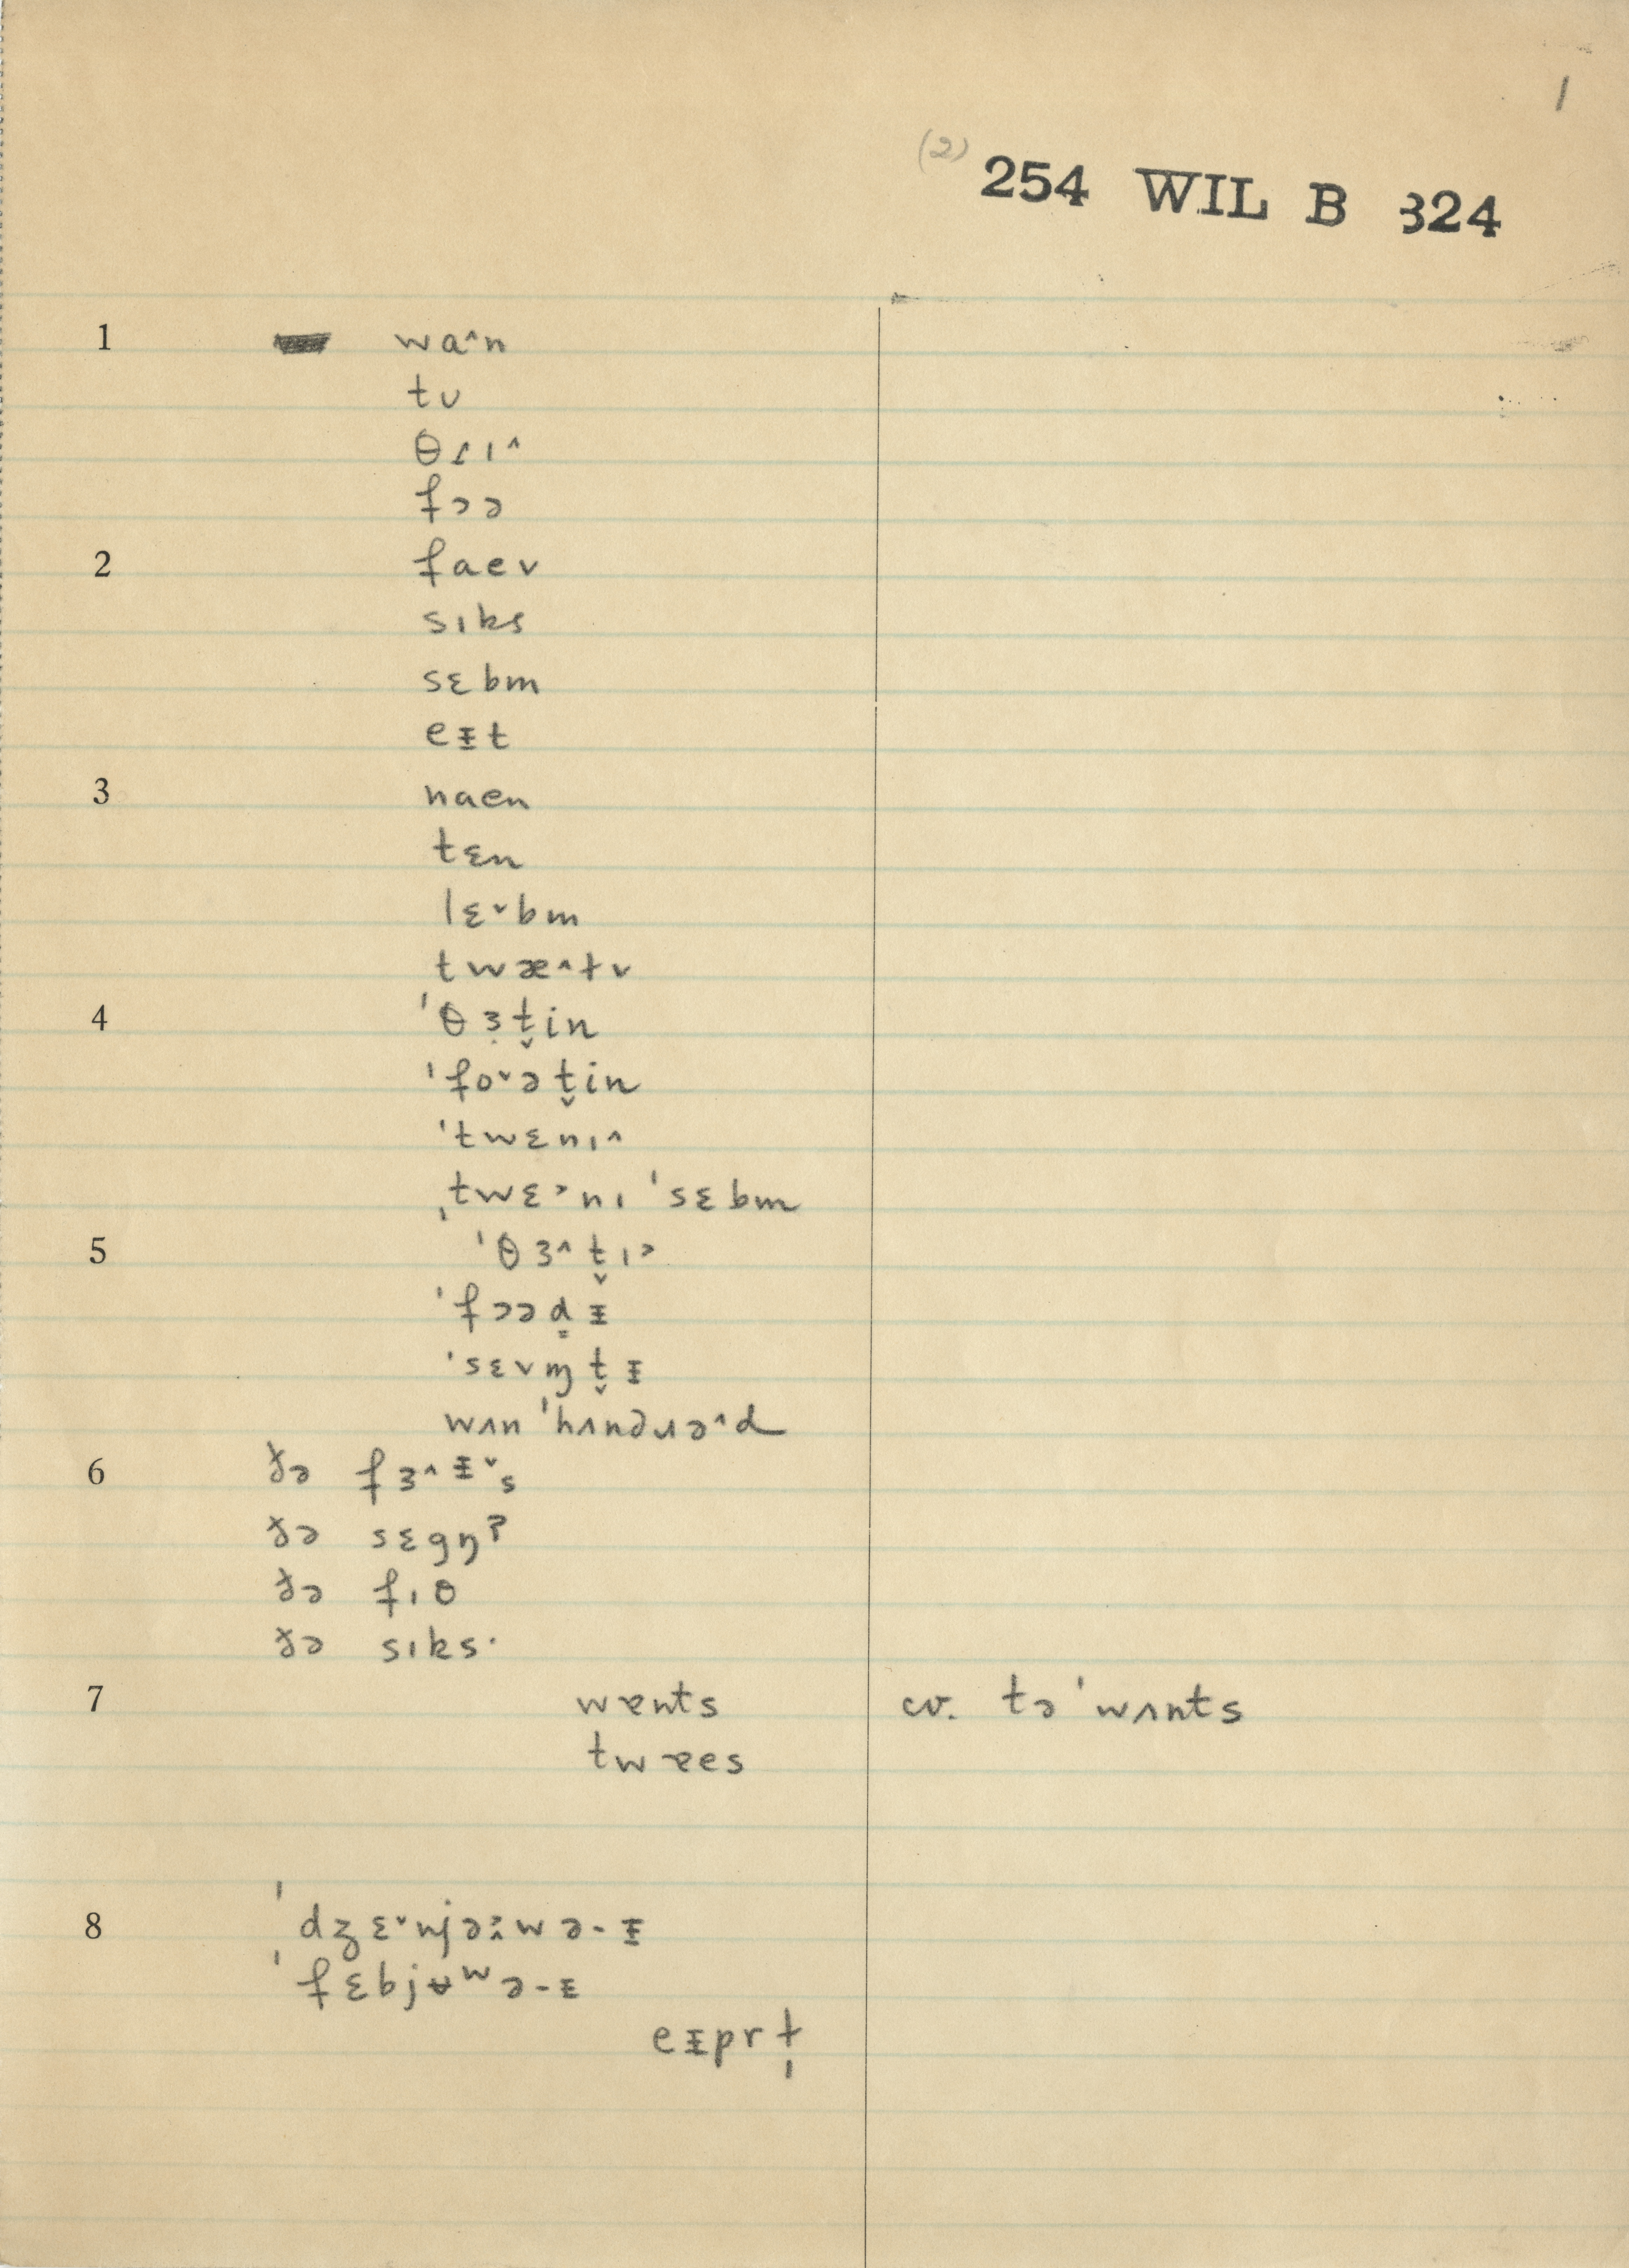 1
(2) 254 WIL B 324
1 wa^n
tʋ
θɾɪ^
fɔə
2 faev
sɪks
sɛbm
eᵻt
3 naen
tɛn
lɛ˅bm
twæ^tv
4 'θɜ̣t̬in
'fo˅ət̬in
'twɛnɪ^
ˌtwɛ˃nɪ 'sɛbm
5 'θɜ^t̬ɪ˃
'fɔəd̳ᵻ
'sɛvɱt̬ᵻ
wʌn 'hʌndɹə^d
6 ðə fɜ^ᵻ˅s
ðə sɛgŋ̍ʔ
ðə fɪθ
ðə sɪks·
7 wɐnts cv. tə'wʌnts
twɐes
8 'dʒɛ˅njəwə-ᵻ
'fɛbjʉʷə-ᵻ
eᵻprɫ̩